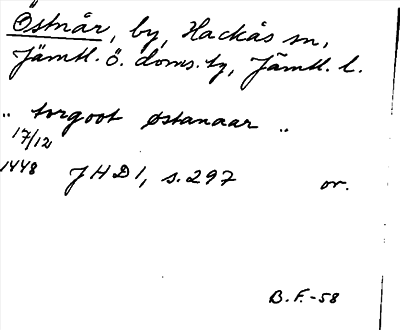 Östnår, by, Hackås sn,
Jämtl. ö. doms. tg, Jämtl. l.
" torgoot østanaar "
17/12
1448 JHD 1, s. 297 or.
B. F. -58